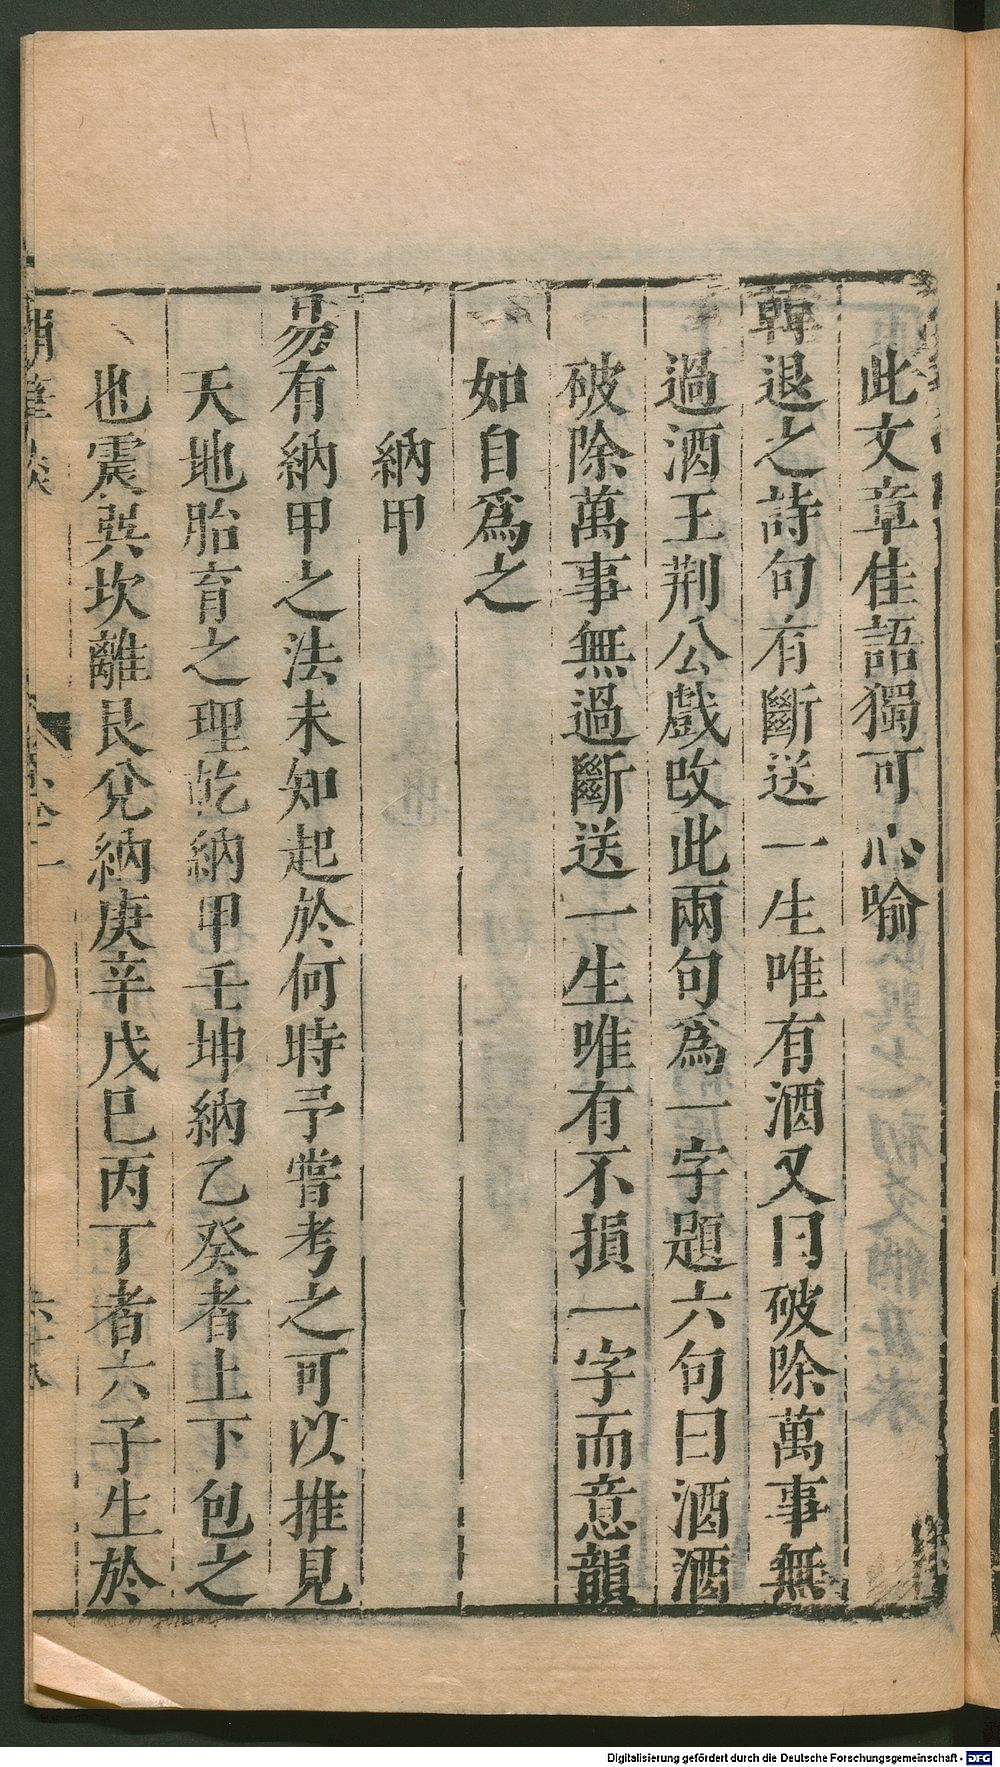 此文章佳語獨可心喻
韓退之詩句有斷送一生唯有酒又曰破除萬事無
過酒王荆公戲改此兩句爲一字題六句曰酒酒
破除萬事無過斷送一生唯有不損一字而意韻
如自爲之
納甲
易有納甲之法未知起於何時予嘗考之可以推見
天地胎育之理乾納甲壬坤納乙癸者上下包之
也震巽坎離艮兌納庚辛戊巳丙丁者六子生於
筆談
卷二
Digitalisierung gefördert durch die Deutsche Forschungsgemeinschaft - DFG